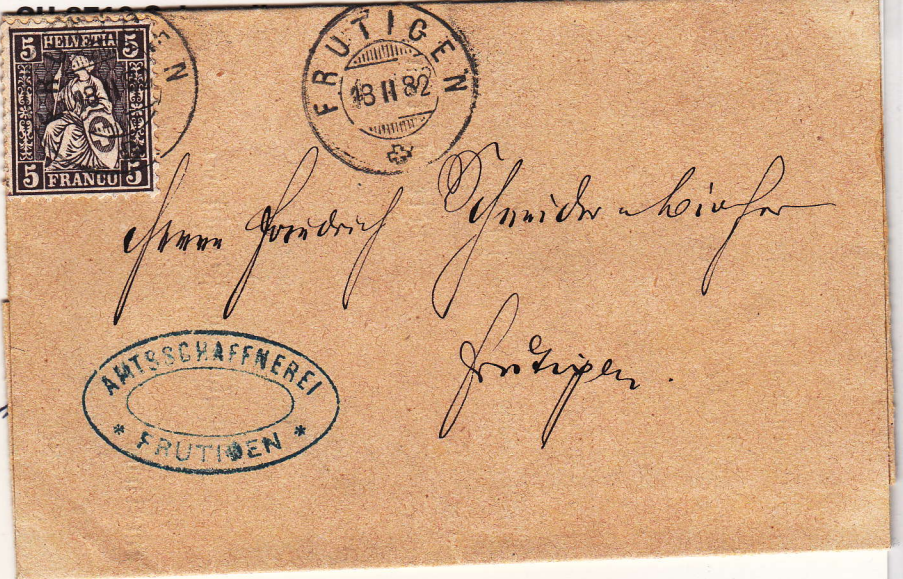 5 HELVETIA 5
5 FRANCO 5
FRUTIGEN
18 II 82
Herrn Friedrich Schneider
Frutigen.
AMTSSCHAFFNEREI
* FRUTIGEN *